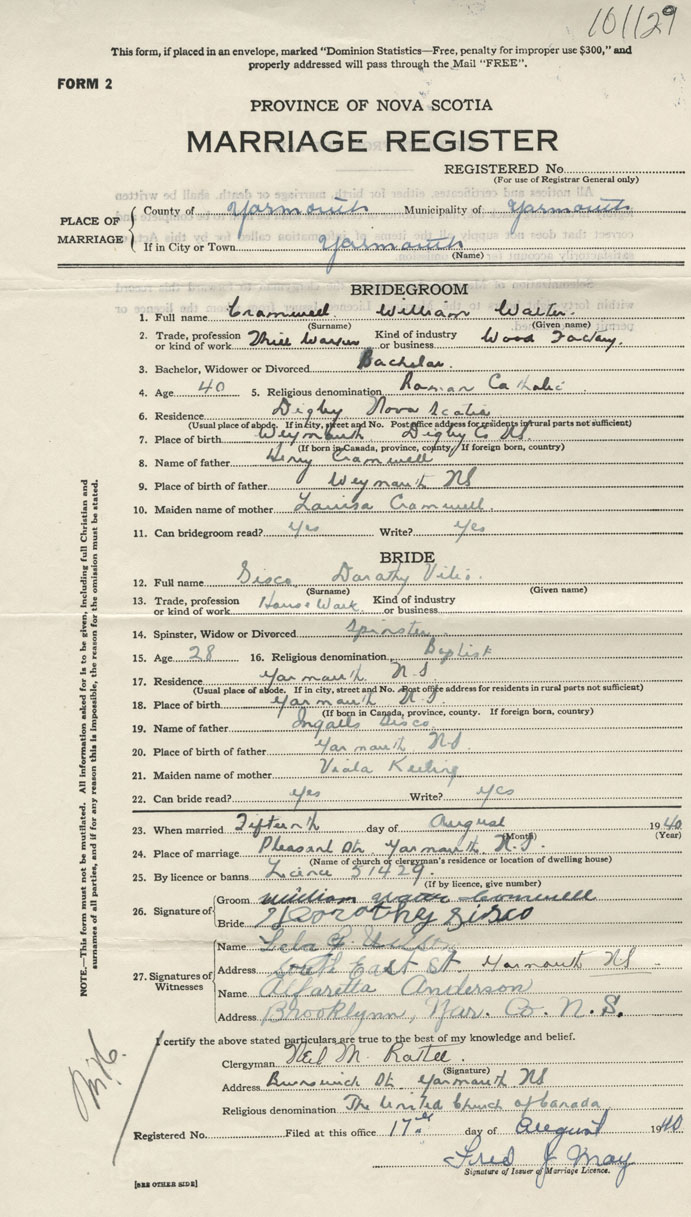 101129
This form, if placed in an envelope, marked "Dominion Statistics—Free, penalty for improper use $300," and
properly addressed will pass through the Mail "FREE".
FORM 2
PROVINCE OF NOVA SCOTIA
MARRIAGE REGISTER
REGISTERED No.
(For use of Registrar General only)
PLACE OF MARRIAGE
County of Yarmouth Municipality of Yarmouth
If in City or Town Yarmouth
(Name)
BRIDEGROOM
1. Full name Cramwell William Walter
(Surname) (Given name)
2. Trade, profession or kind of work Kind of industry or business Wood Factory.
3. Bachelor, Widower or Divorced Bachelor.
4. Age 40 5. Religious denomination Roman Catholic
6. Residence Digby Nova Scotia
(Usual place of abode. If in city, street and No. Post office address for residents in rural parts not sufficient)
7. Place of birth Weymouth Digby Co NS.
(If born in Canada, province, county. If foreign born, country)
8. Name of father Henry Cramwell
9. Place of birth of father Weymouth NS
10. Maiden name of mother Louisa Cramwell
11. Can bridegroom read? Yes Write? Yes
BRIDE
12. Full name Sisco Dorathy
(Surname) (Given name)
13. Trade, profession or kind of work House Work Kind of industry or business
14. Spinster, Widow or Divorced Spinster
15. Age 28 16. Religious denomination Baptist
17. Residence Yarmouth N.S
(Usual place of abode. If in city, street and No. Post office address for residents in rural parts not sufficient)
18. Place of birth Yarmouth N.S
(If born in Canada, province, county. If foreign born, country)
19. Name of father Ingalls Sisco
20. Place of birth of father Yarmouth NS
21. Maiden name of mother Viola Keeling
22. Can bride read? yes Write? yes
23. When married day of August 1940
(Month) (Year)
24. Place of marriage Pleasant St. Yarmouth N.S.
(Name of church or clergyman's residence or location of dwelling house)
25. By licence or banns Licence 51429
(If by licence, give number)
26. Signature of
Groom William
Bride Dorothy Sisco
27. Signatures of Witnesses
Name Lela
Address South East St. Yarmouth NS
Name Alfaretta Anderson
Address Brooklynn, Yar. Co. N.S.
I certify the above stated particulars are true to the best of my knowledge and belief.
Clergyman Neil M.
(Signature)
Address Brunswick St. Yarmouth NS
Religious denomination The United Church of Canada
Registered No. Filed at this office 17th day of August 1940
Fred J May
Signature of Issuer of Marriage Licence.
[SEE OTHER SIDE]
NOTE.—This form must not be mutilated. All information asked for is to be given, including full Christian and
surnames of all parties, and if for any reason this is impossible, the reason for the omission must be stated.